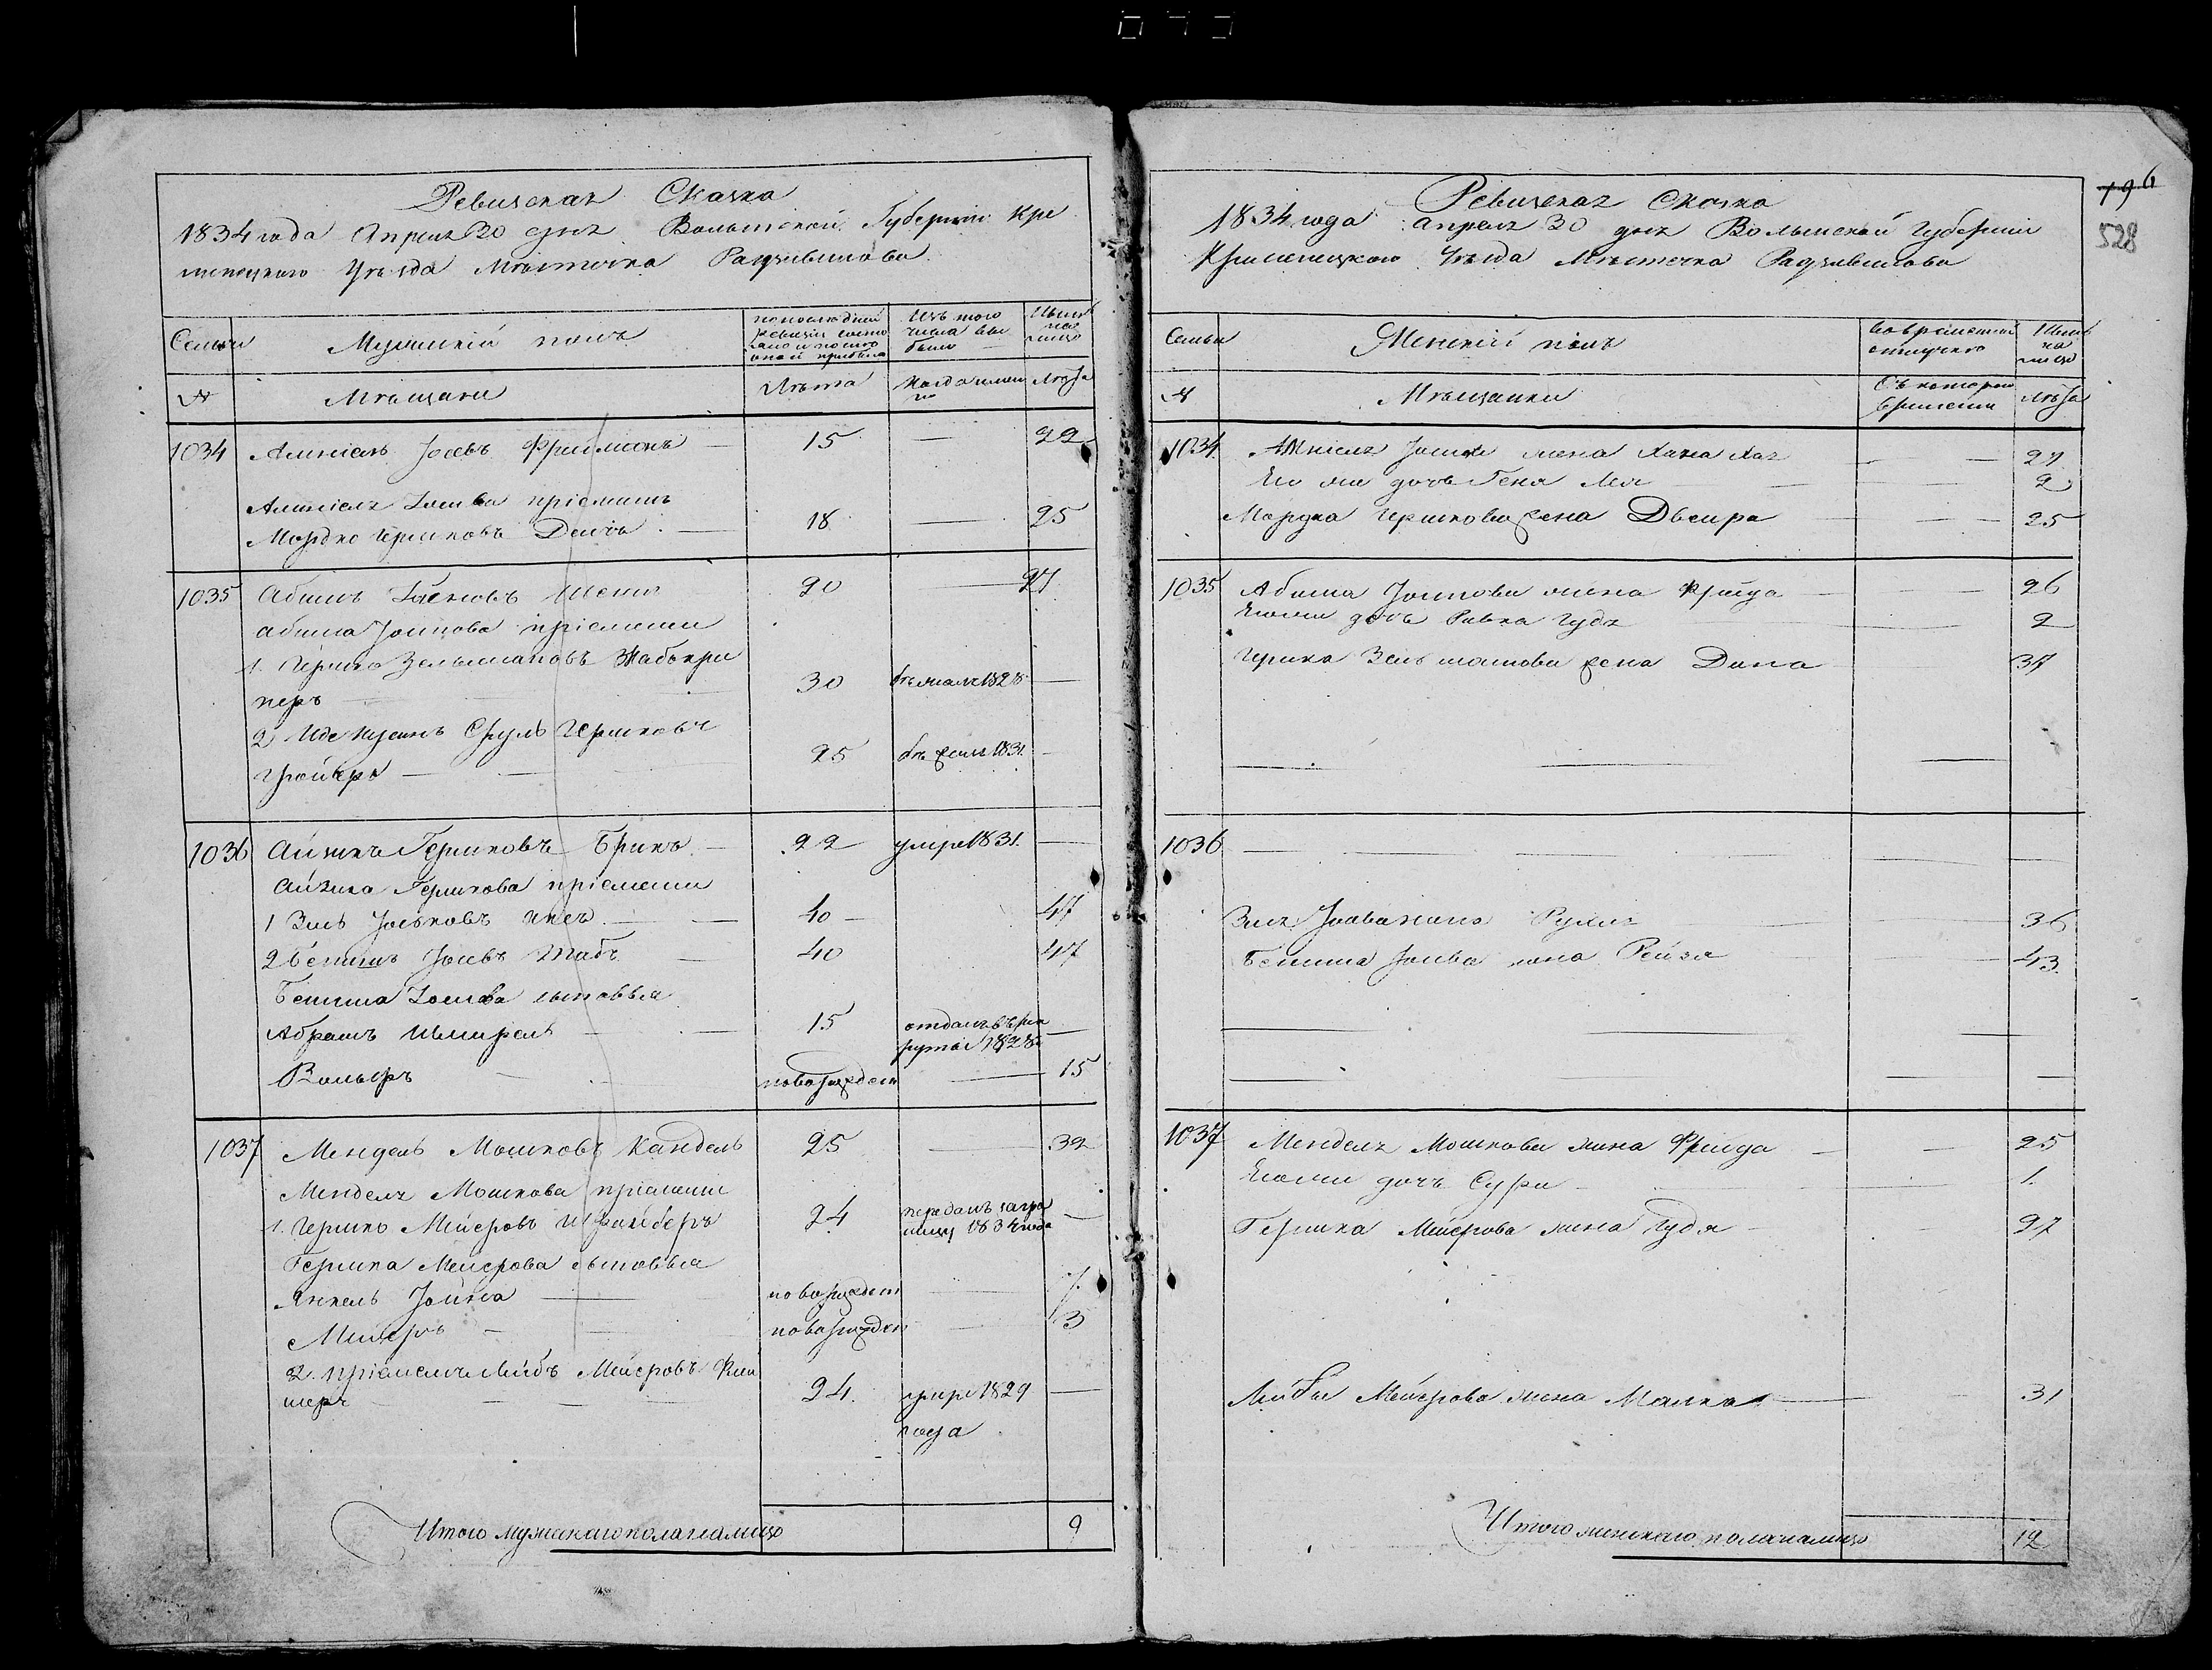 Ревизская Сказка
1834 года Апреля 30 дня Волынской Губернiи Кре
менецкого Уезда Местечка Радзивилова
Семьи
Мужескiй полъ
по последней
ревизiи состо
яло и после
оной прибыло
Изъ того
числа вы
было
Ныне
на
лицо
№
Мещани
Лета
Когда имен
но
Лета
1034 Іосевъ Фришманъ — 15 — 22
Іосива прiемышъ
Мордко Гершковъ Дейчъ — 18 — 25
1035 Абишъ 20 — 27
Абиша прiемыши
1. Гершко Зельмановъ
перъ — 30 бежалъ 1828 —
2. Сруль Гершковъ
Гройберъ — 25 бежалъ 1831. —
1036 Айзикъ Гершковъ Брикъ — 22 умре 1831. —
Айзика Гершкова прiемыши
1 Зись Іоськовъ — 40 — 47
2 Бенишъ Іосевъ Штабъ — 40 47
Бениша Іосива сыновья
Абрамъ Шмирель — 15 отданъ въ рек
руты 1828 —
Вольфъ — новорожден — 15
1037 Мендель Мошковъ Кандель 25 — 32
Менделя Мошкова прiемыши
1. Гершко Мейеровъ 24 переданъ загра
ницу 1834 года —
Гершка Мейерова сыновья
Янкель Іойна — новорожден — 7.
Мейеръ — новорожден — 3
2. прiемышъ Лейбъ Мейеровъ Флей
шеръ — 24. умре 1829 —
года
Итого мужескаго пола на лицо 9
196
528
Ревизская Сказка
1834 года Апреля 30 дня Волынской Губернiи
Кременецкого Уезда Местечка Радзивилова
Семьи
Женскiй полъ
Во временной
отлучке
Ныне
на
лицо
№
Мещанки
Съ которого
времени
Лета
1034. жена Хана Хая — 27
Его же дочь Геня Лея — 2
Мордка Гершкова жена Двейра — 25
1035 Абиша жена Фрейда — 26
Его же дочь Ривка Гудя — 2
Гершка Зельманова жена Дина 37
1036 —
Зися жена Рухля — 36
Бениша Іосива жена Рейзя — 43.
1037 Менделя Мошкова жена Фрейда — 25
Его же дочь Сура — 1.
Гершка Мейерова жена Гудя — 27
Лейбы Мейерова жена Малка — 31
Итого женскаго пола на лицо 12